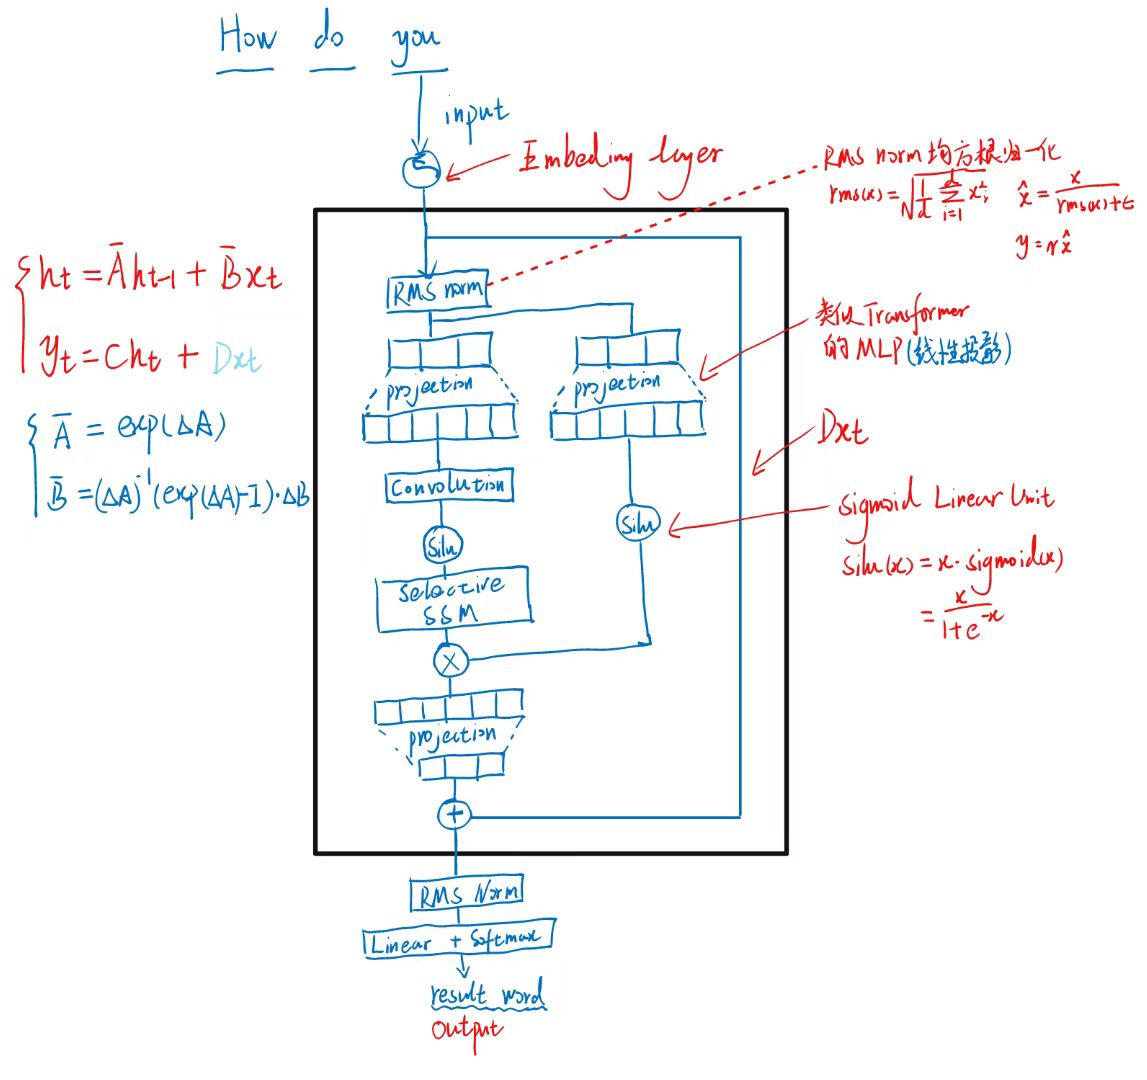 How do you
input
Embeding layer
RMS norm 均方根归一化
rms(x) = √(1/d Σ_{i=1}^{d} x_i²) x̂ = x/(rms(x)+ε)
y = γx̂
{ h_t = Āh_{t-1} + B̄x_t
y_t = Ch_t + Dx_t
{ Ā = exp(ΔA)
B̄ = (ΔA)⁻¹(exp(ΔA)-I)·ΔB
RMS norm
类似Transformer
的MLP(线性投影)
projection
projection
Dxt
Convolution
Sigmoid Linear Unit
Silu
Silu
silu(x) = x · sigmoid(x)
= x/(1+e^{-x})
Selective
SSM
×
projection
+
RMS Norm
Linear + Softmax
result word
output